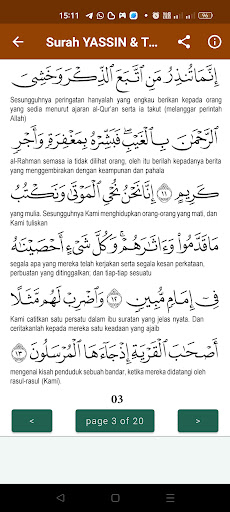 15:11
96
Surah YASSIN & T...
إِنَّمَا تُنذِرُ مَنِ ٱتَّبَعَ ٱلذِّكْرَ وَخَشِىَ
Sesungguhnya peringatan hanyalah yang engkau berikan kepada orang
yang sedia menurut ajaran al-Qur'an serta ia takut (melanggar perintah
Allah)
ٱلرَّحْمَٰنَ بِٱلْغَيْبِ ۖ فَبَشِّرْهُ بِمَغْفِرَةٍ وَأَجْرٍ
al-Rahman semasa ia tidak dilihat orang, oleh itu berilah kepadanya berita
yang menggembirakan dengan keampunan dan pahala
كَرِيمٍ ١١ إِنَّا نَحْنُ نُحْىِ ٱلْمَوْتَىٰ وَنَكْتُبُ
yang mulia. Sesungguhnya Kami menghidupkan orang-orang yang mati, dan
Kami tuliskan
مَا قَدَّمُوا۟ وَءَاثَٰرَهُمْ ۚ وَكُلَّ شَىْءٍ أَحْصَيْنَٰهُ
segala apa yang mereka telah kerjakan serta segala kesan perkataan,
perbuatan yang ditinggalkan; dan tiap-tiap sesuatu
فِىٓ إِمَامٍ مُّبِينٍ ١٢ وَٱضْرِبْ لَهُم مَّثَلًا
Kami catitkan satu persatu dalam ibu suratan yang jelas nyata. Dan
ceritakanlah kepada mereka satu keadaan yang ajaib
أَصْحَٰبَ ٱلْقَرْيَةِ إِذْ جَآءَهَا ٱلْمُرْسَلُونَ ١٣
mengenai kisah penduduk sebuah bandar, ketika mereka didatangi oleh
rasul-rasul (Kami).
03
< page 3 of 20 >